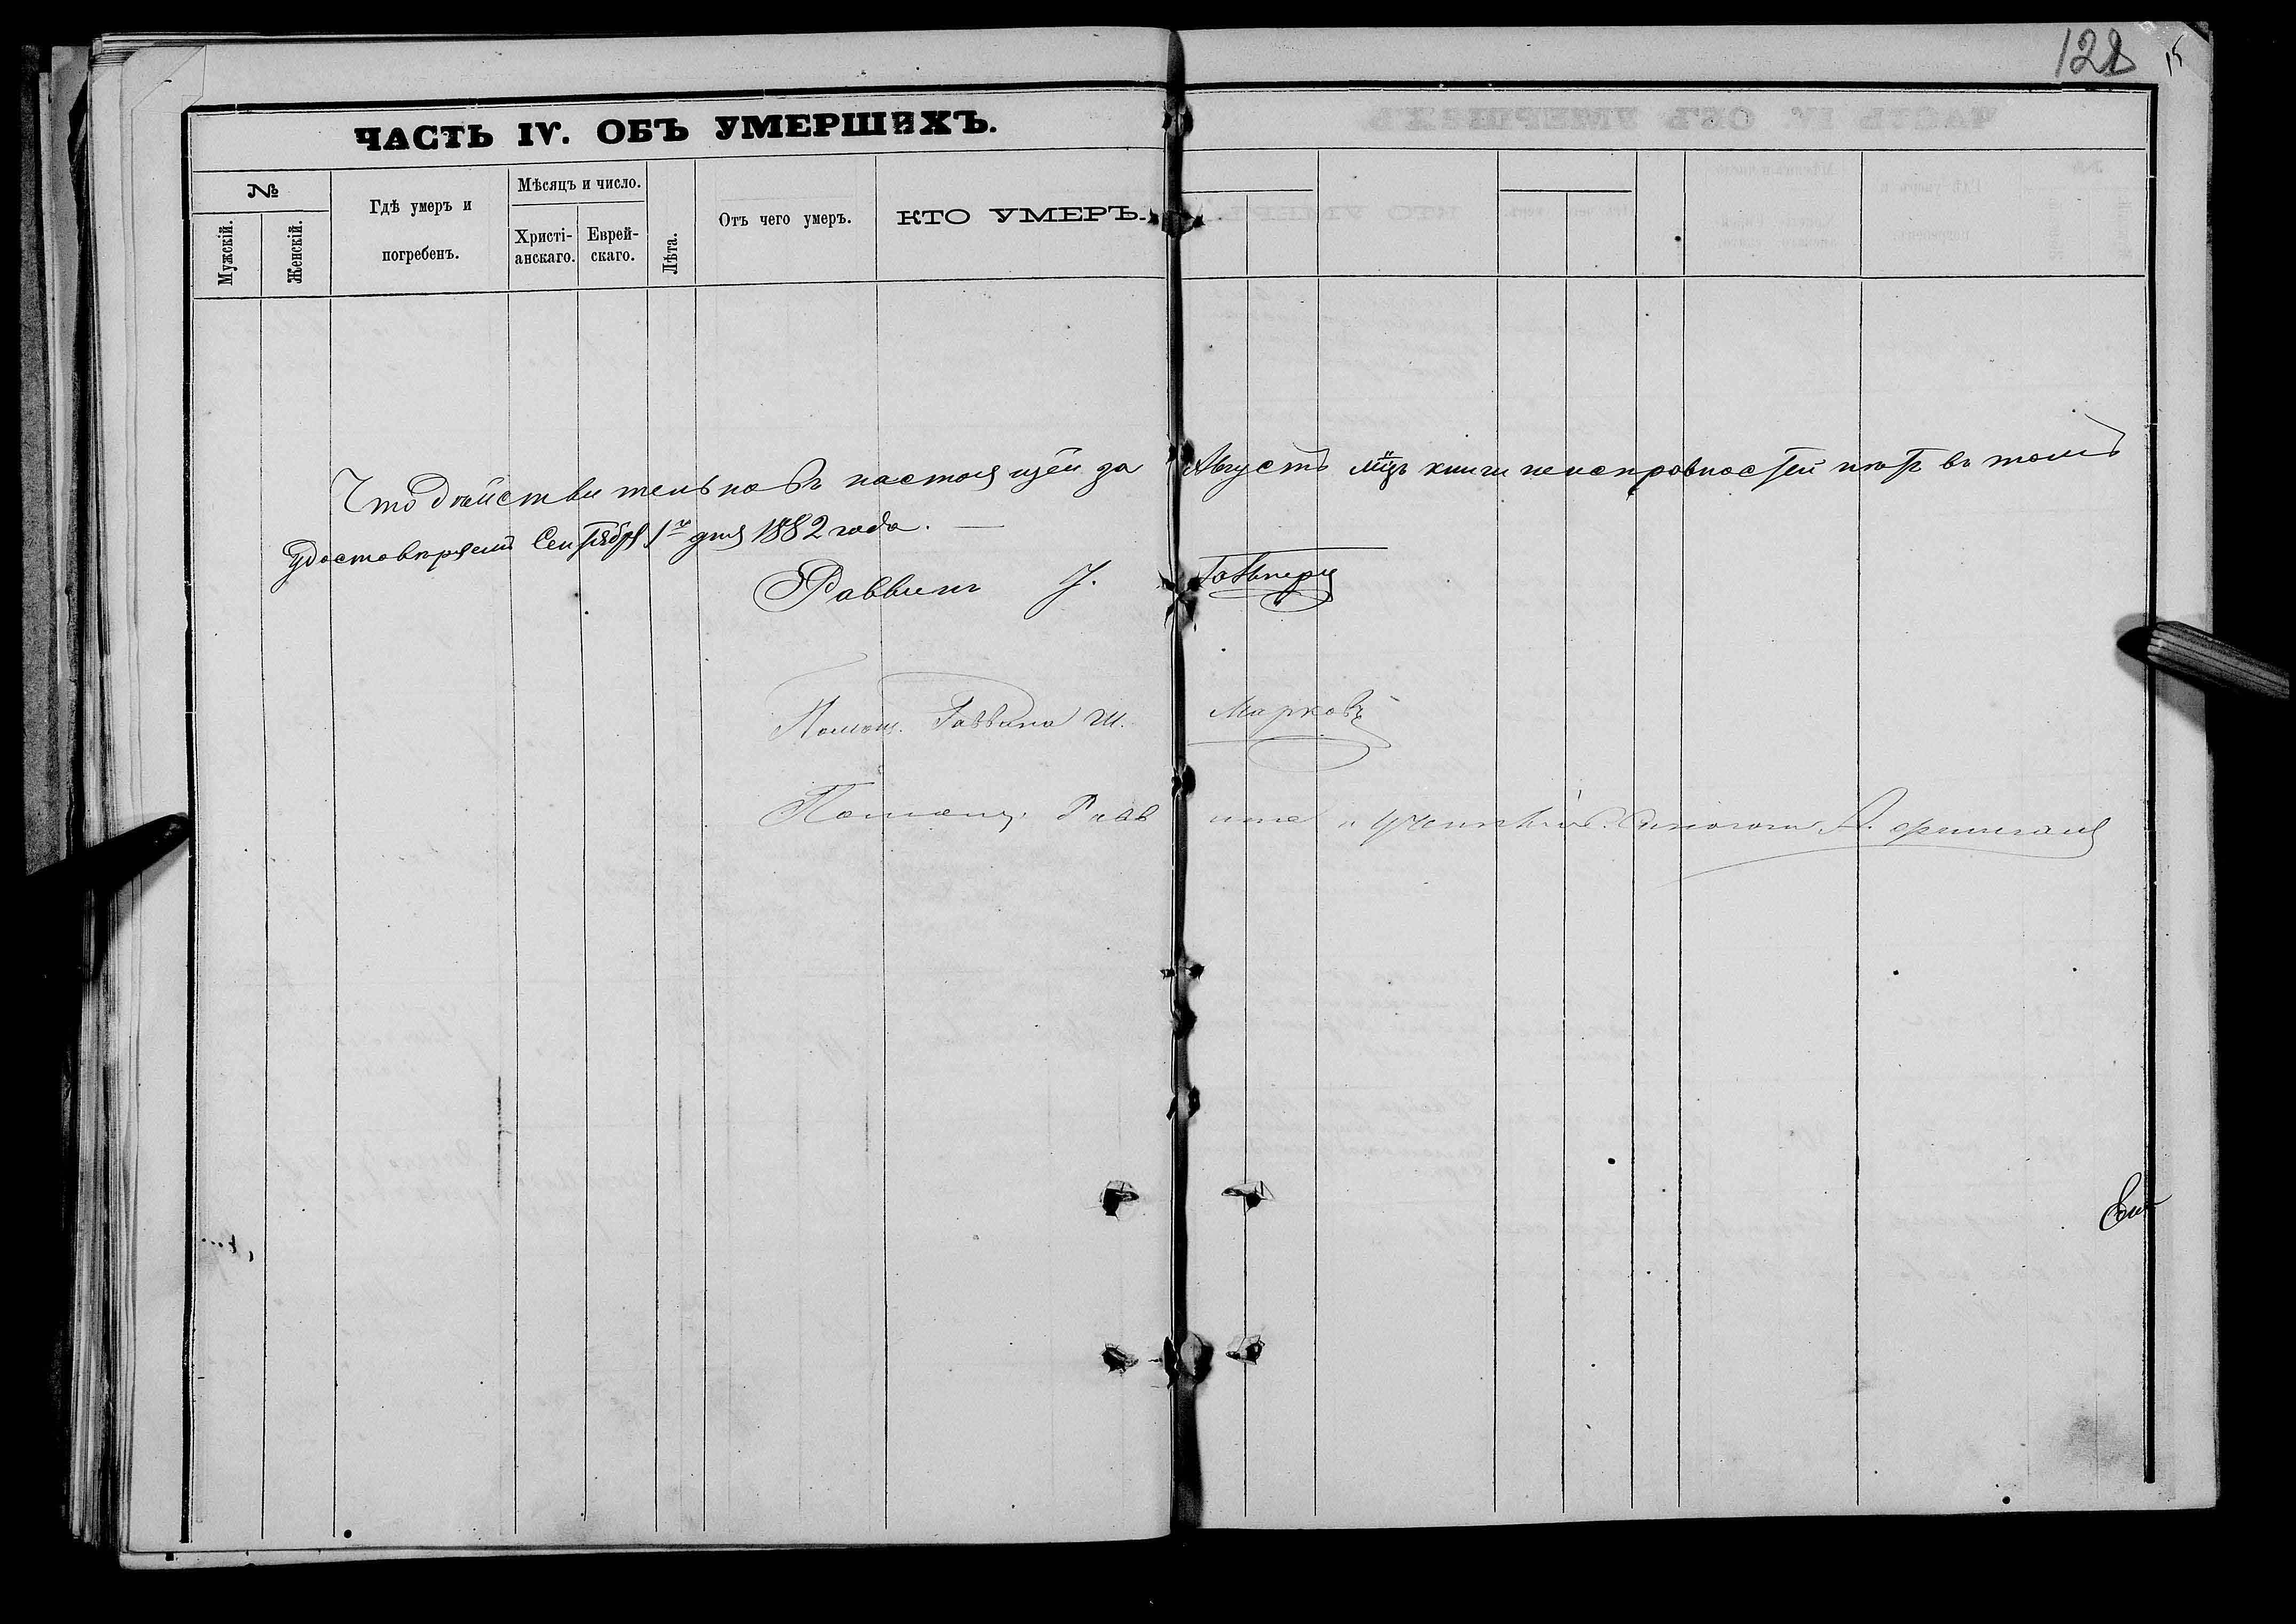 122
15
ЧАСТЬ IV. ОБЪ УМЕРШИХЪ.
№
Мужскій.
Женскій.
Гдѣ умеръ и
погребенъ.
Мѣсяцъ и число.
Христі-
анскаго.
Еврей-
скаго.
Лѣта.
Отъ чего умеръ.
КТО УМЕРЪ.
Что действительно въ настоящей за Августъ мцъ книги неисправностей нѣтъ въ томъ
удостовѣряемъ Сентября 1го дня 1882 года. —
Раввинъ
Помощ. Раввина Ш. Марковъ
Помощ. Раввина и